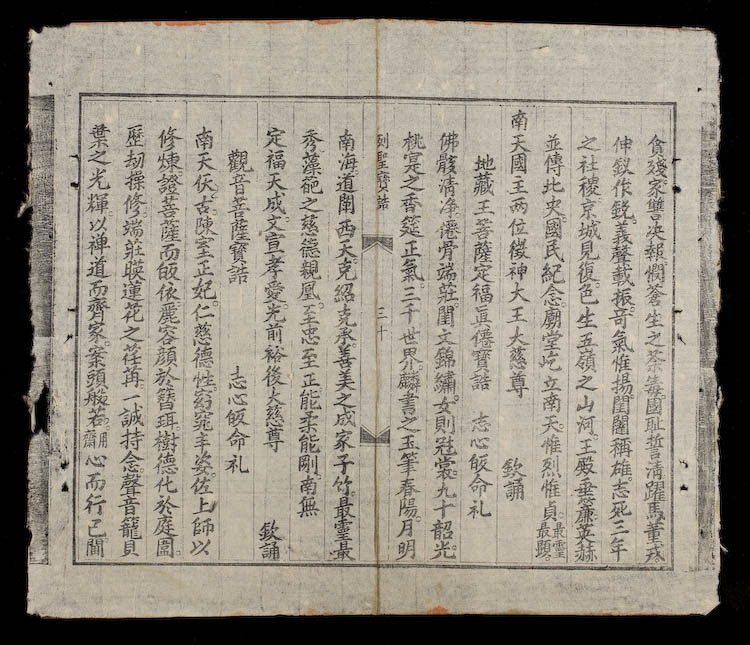 貪殘家讐决報憫蒼生之荼毒國耻誓清躍馬董戎
伸釵作銳義聲載振竒氣惟揚閨閣稱雄志死三年
之社稷京城見復色生五嶺之山河王殿垂簾英赫
並傳北史國民紀念廟堂屹立南天惟烈惟貞最靈最顯
南天國主两位徵神大王大慈尊 欽誦
地藏王菩薩定福真僊寳誥 志心皈命礼
佛骸清净僊骨端莊閨文錦繡女則冠裳九十韶光
桃寔之香筵正氣三千世界麟書之玉筆春陽月明
列聖寳誥 三十
南海道闡西天克紹克承善美之成家子竹最靈最
秀藻葩之慈德親凰至忠至正能柔能剛南無
定福天成文宣孝愛光前裕後大慈尊 欽誦
觀音菩薩寳誥 志心皈命礼
南天伬古陳室正妃仁慈德性窈窕丰姿佐上師以
修煉證菩薩而皈依麗容顔於簪珥樹德化於庭圖
歷刼操修端莊暎蓮花之荏苒一誠持念聲音籠貝
葉之光輝以禅道而齊家案頭般若用齋心而行已閫